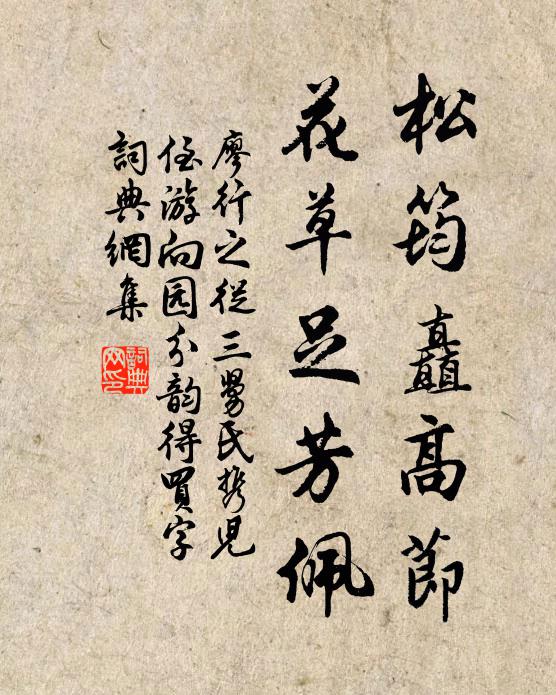 松筠矗髙節
花草足芳佩
廖行之從三舅氏携児
侄游向园分韵得買字
詞典網集
詞典网印